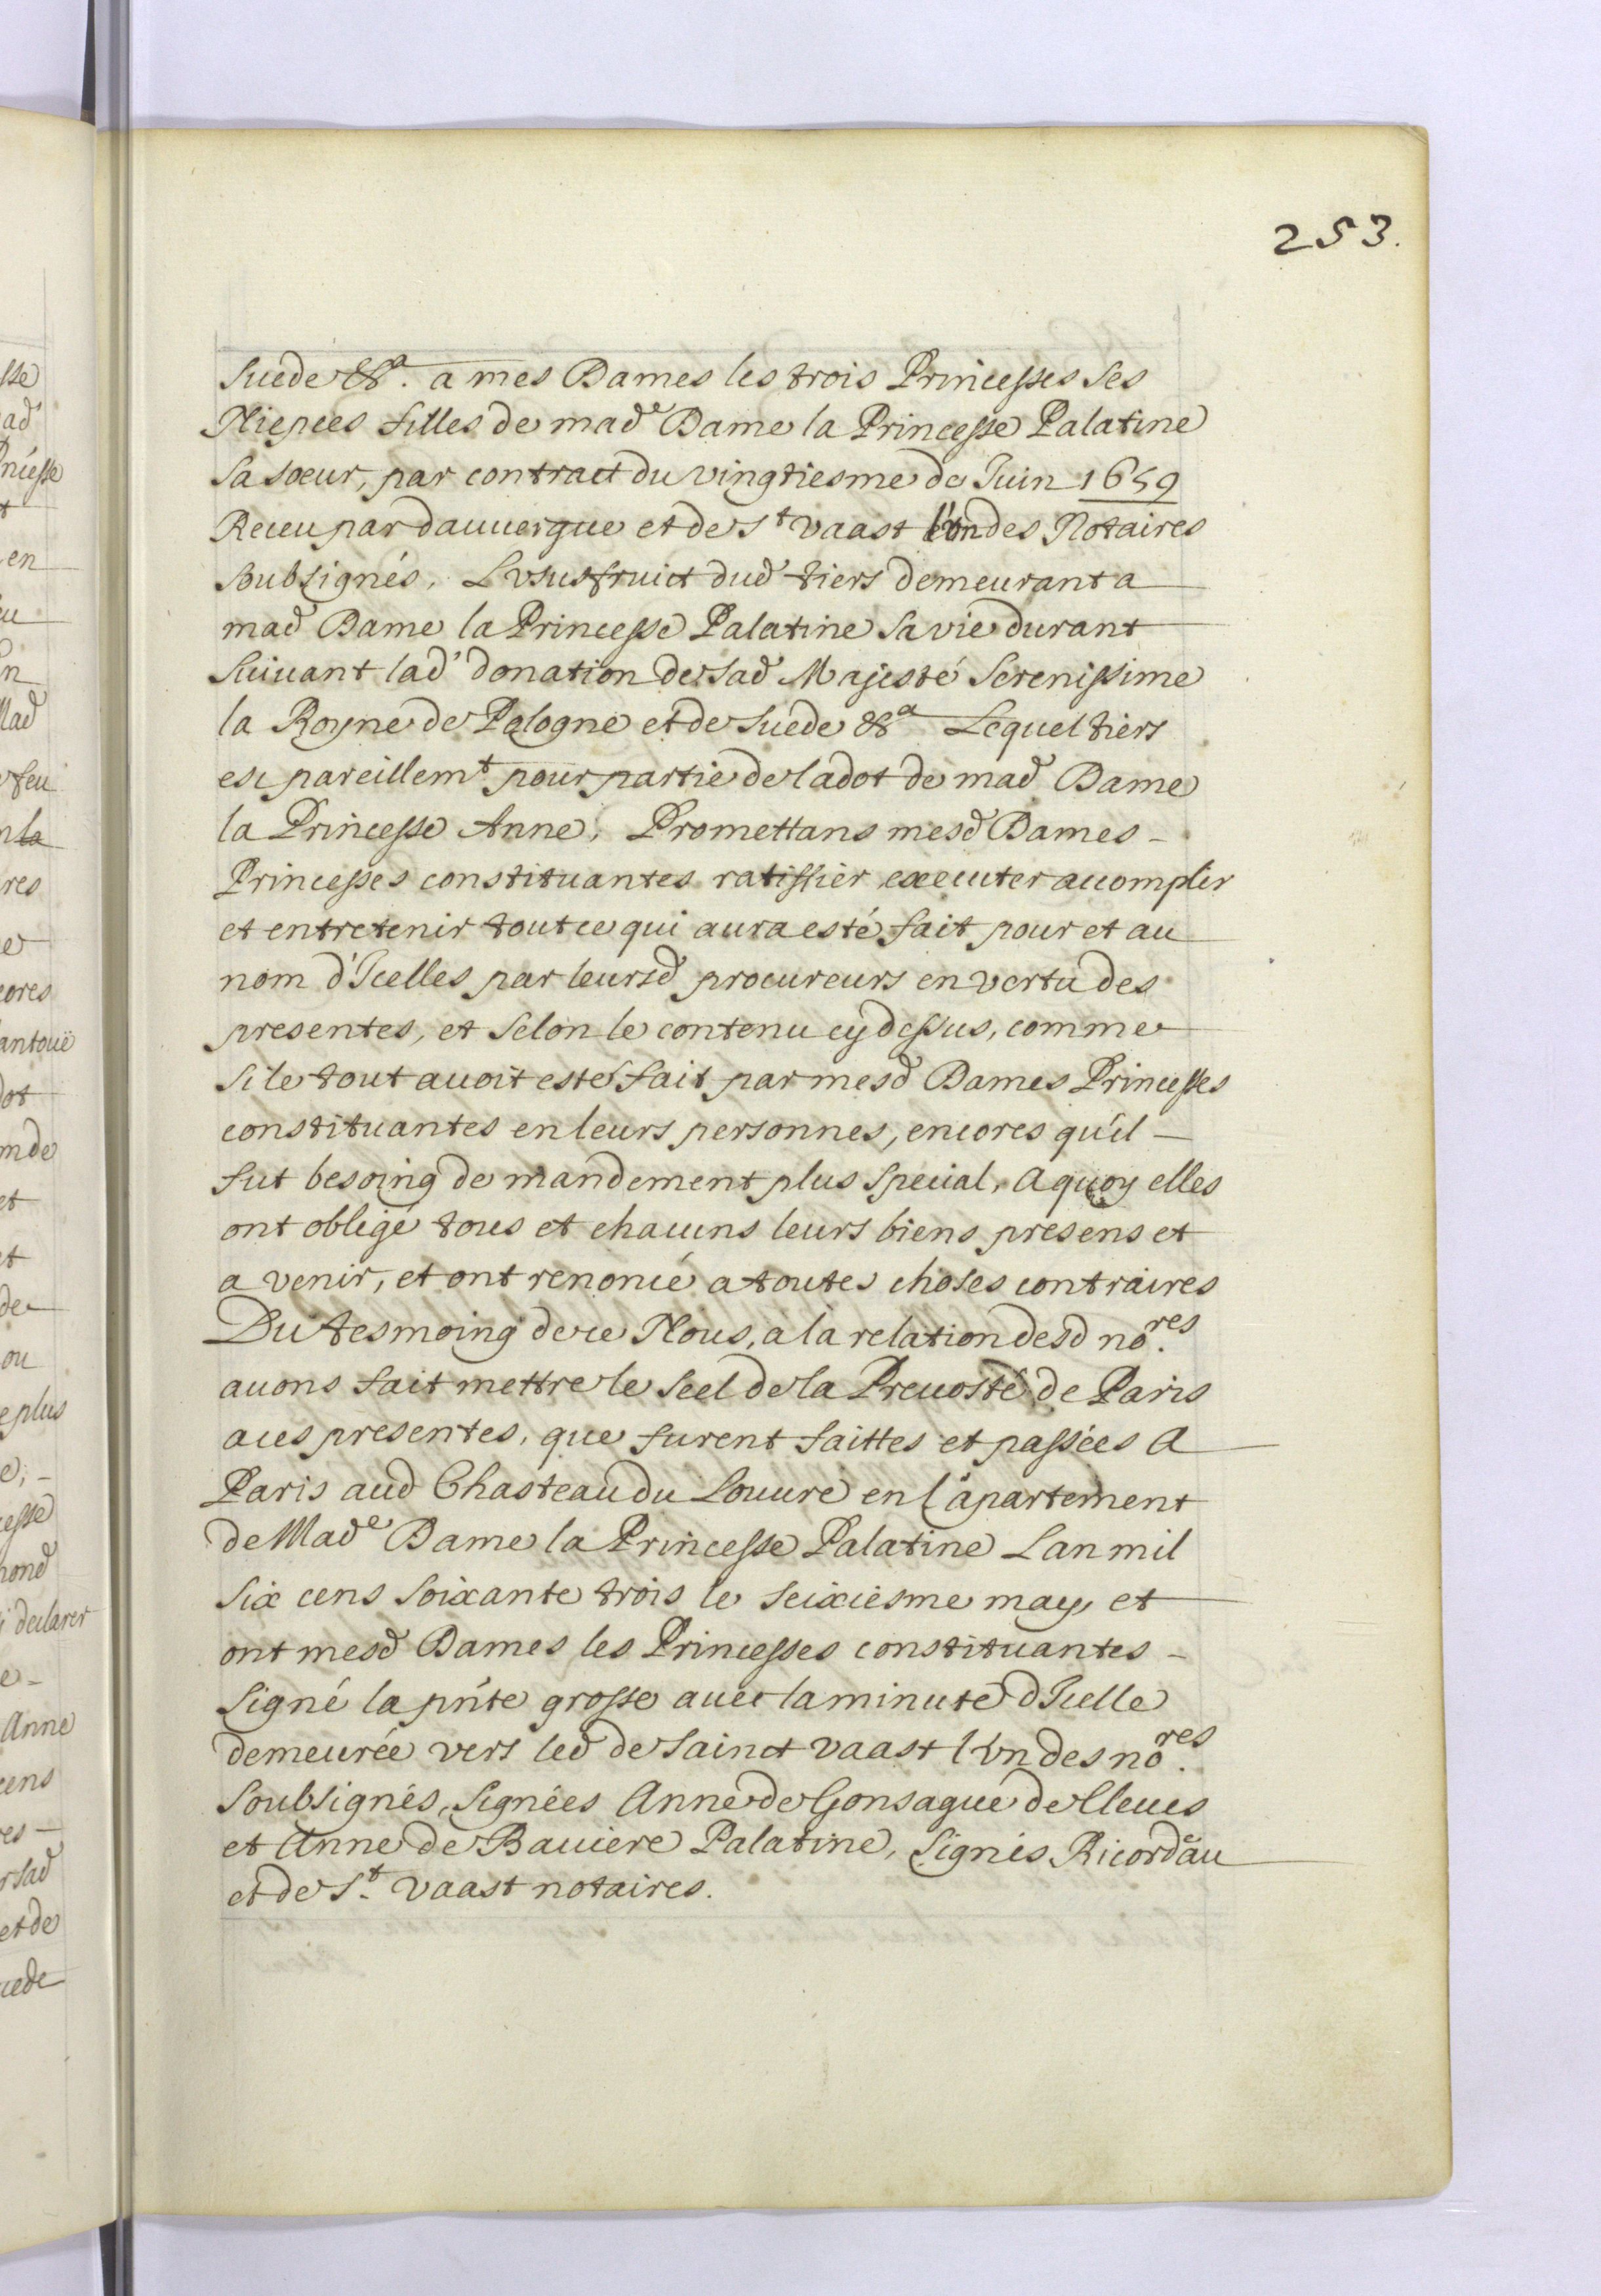 253.
Suede &a. a mes Dames les trois Princesses ses
Niepces filles de made Dame la Princesse Palatine
sa sœur, par contract du vingtiesme de Juin 1659
Receu par dauuergue et de St vaast l'vn des Notaires
soubsignés, Lvsusfruict dud tiers demeurant a
mad Dame la Princesse Palatine sa vie durant
suiuant lad' donation de sad Majesté Serenissime
la Royne de Pologne et de Suede &a Lequel tiers
est pareillemt pour partie de la dot de mad Dame
la Princesse Anne, Promettans mesd Dames -
Princesses constituantes ratiffier executer acomplir
et entretenir tout ce qui aura esté fait pour et au
nom d'Icelles par leursd procureurs en vertu des
presentes, et selon le contenu cy dessus, comme
si le tout auoit esté fait par mesd Dames Princesses
constituantes en leurs personnes, encores qu'il -
fut besoing de mandement plus special, a quoy elles
ont obligé tous et chacuns leurs biens presens et
a venir, et ont renoncé a toutes choses contraires
Du tesmoing de ce Nous, a la relation desd no.res
auons fait mettre le seel de la Preuosté de Paris
a ces presentes, que furent faittes et passées a
Paris aud Chasteau du Louure en l'apartement
de Made Dame la Princesse Palatine Lan mil
six cens soixante trois le seixiesme may, et
ont mesd Dames les Princesses constituantes -
signé la pnte grosse auec la minute d'Icelle
demeurée vers led de sainct vaast l'vn des no.res
soubsignés, signées Anne de Gonsague de Cleues
et Anne de Bauiere Palatine, signés Ricordau
et de St. vaast notaires.